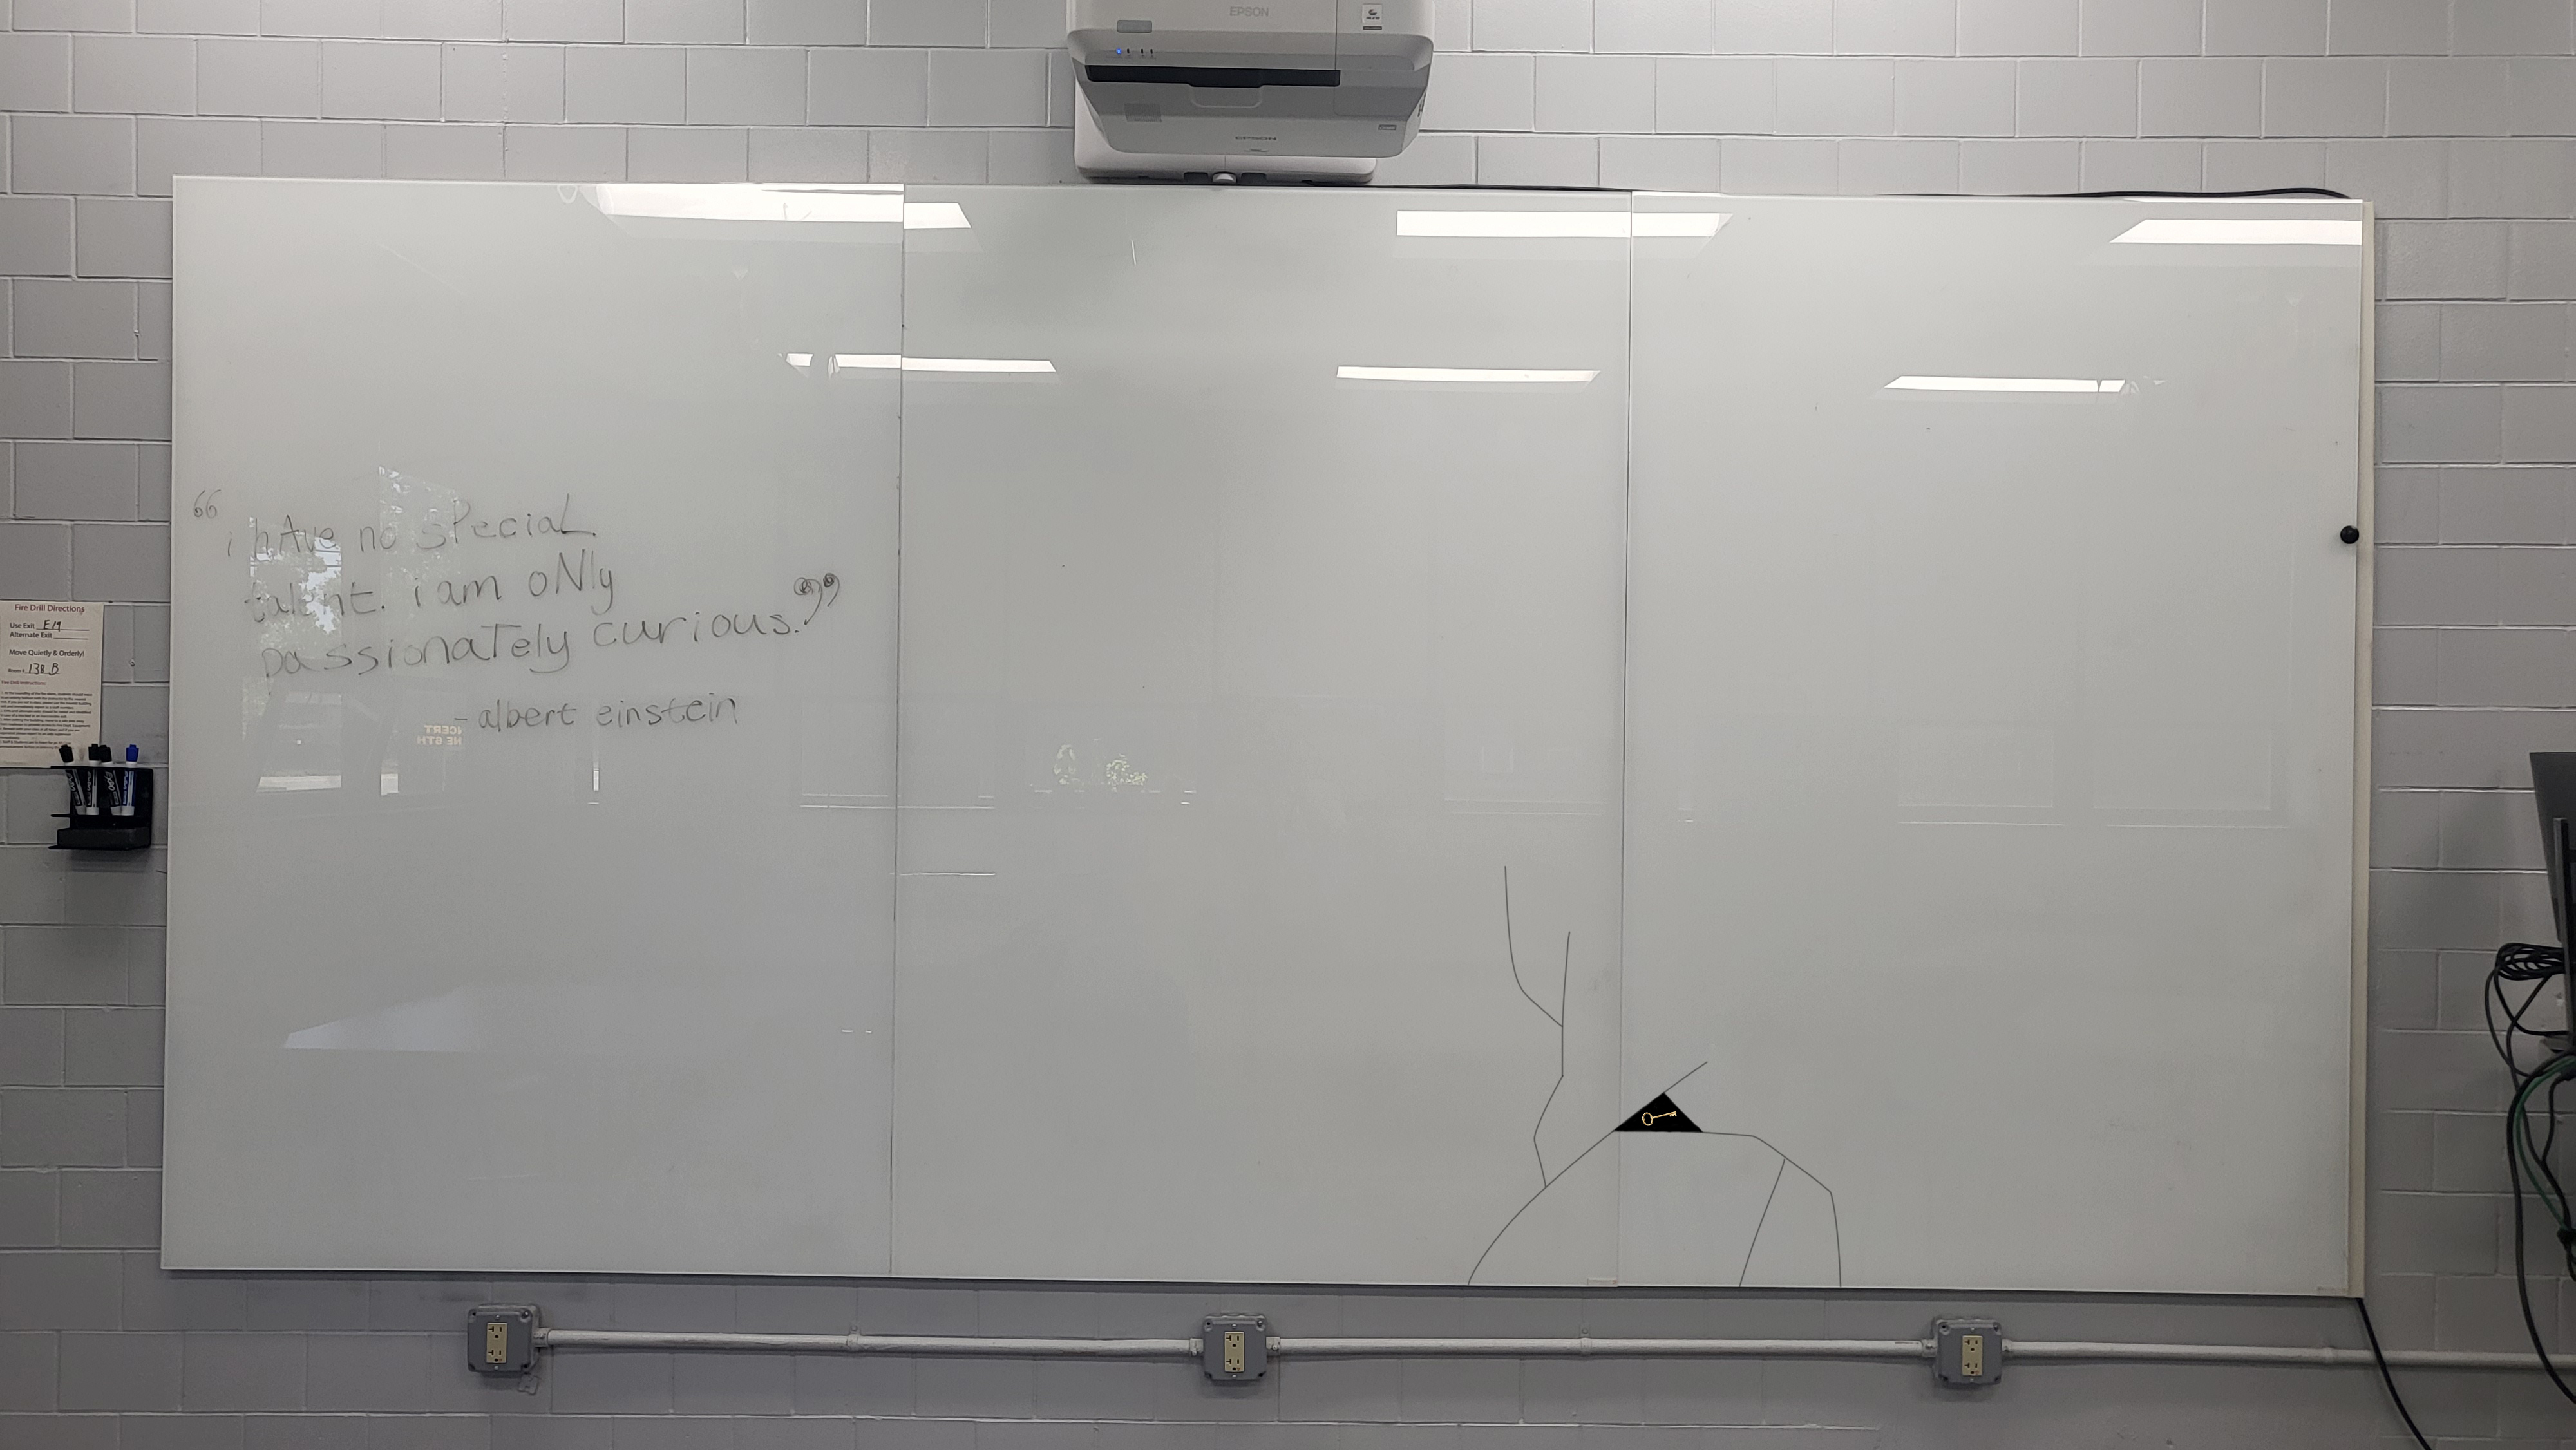 EPSON
EPSON
“ i hAve no sPeciaL
talent. i am oNly
passionaTely curious.”
- albert einstein
Fire Drill Directions
Use Exit E19
Alternate Exit
Move Quietly & Orderly!
Room # 138 B
Fire Drill Instructions:
NCERT
HE 6TH